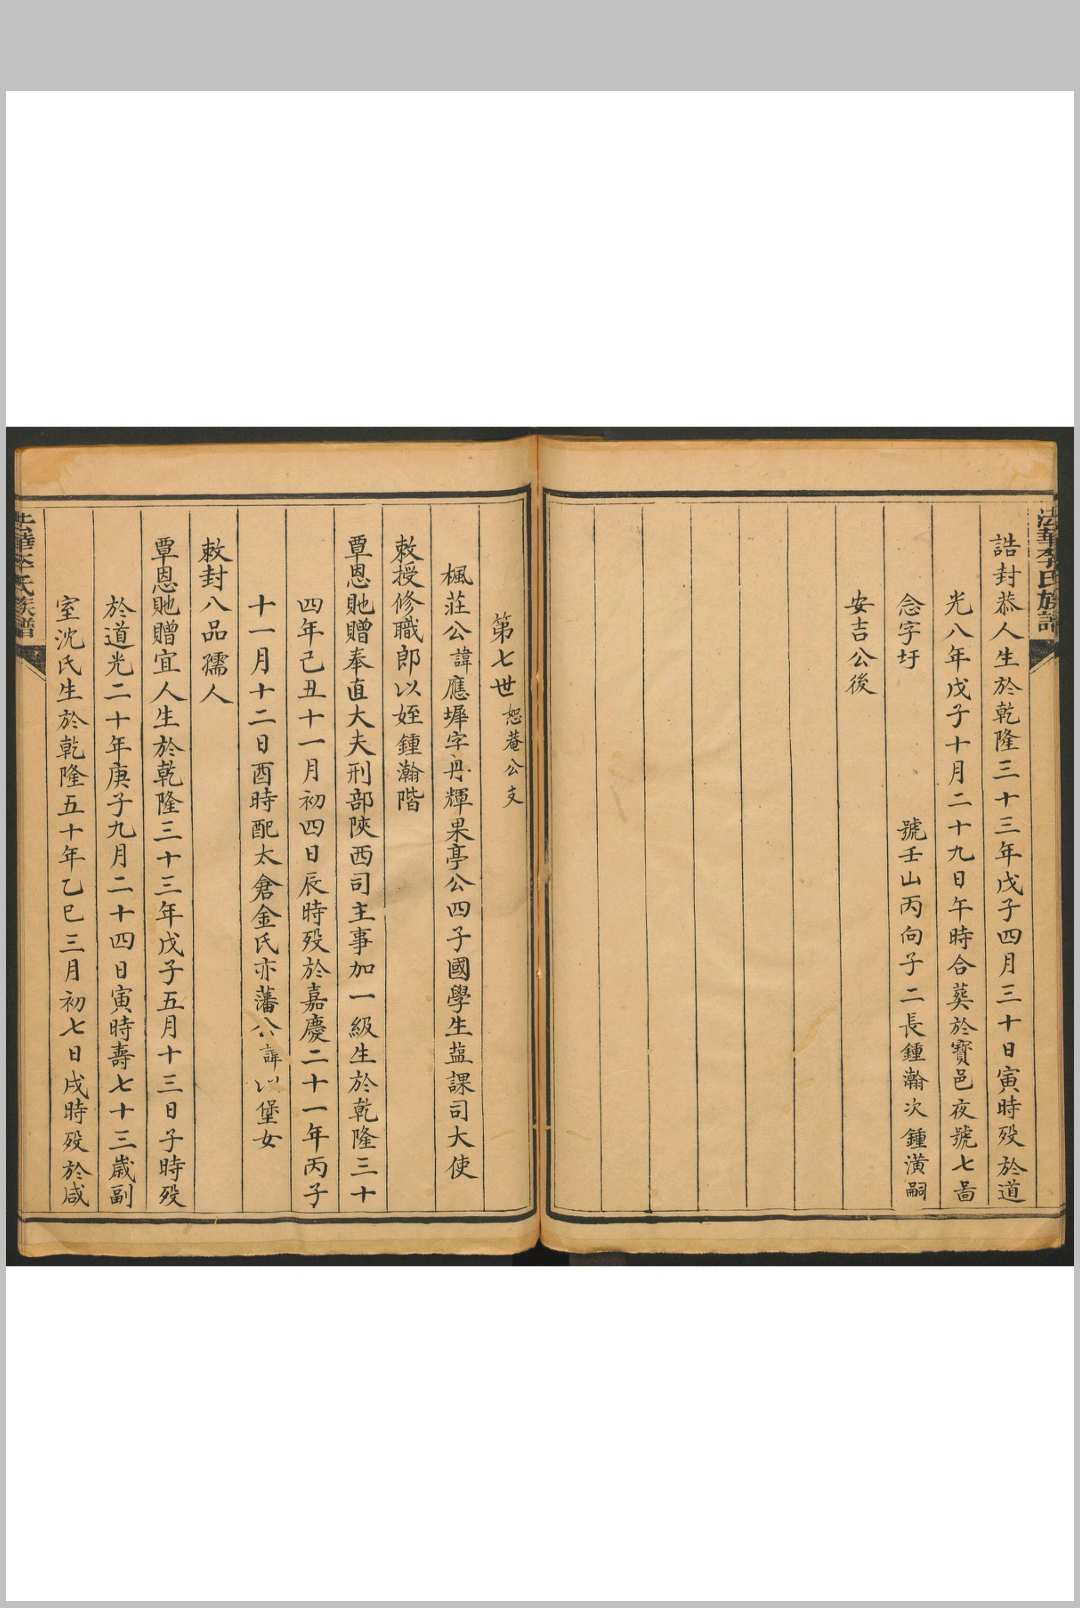 法華李氏族譜
誥封恭人生於乾隆三十三年戊子四月三十日寅時歿於道
光八年戊子十月二十九日午時合葬於寶邑夜號七啚
念字圩 號壬山丙向子二長鍾瀚次鍾潢嗣
安吉公後
第七世恕菴公支
楓莊公諱應墀字丹輝果亭公四子國學生鹽課司大使
敕授修職郎以姪鍾瀚階
覃恩貤贈奉直大夫刑部陝西司主事加一級生於乾隆三十
四年己丑十一月初四日辰時歿於嘉慶二十一年丙子
十一月十二日酉時配太倉金氏亦藩公諱以堡女
敕封八品孺人
覃恩貤贈宜人生於乾隆三十三年戊子五月十三日子時歿
於道光二十年庚子九月二十四日寅時壽七十三歲副
室沈氏生於乾隆五十年乙巳三月初七日戌時歿於咸
法華李氏族譜